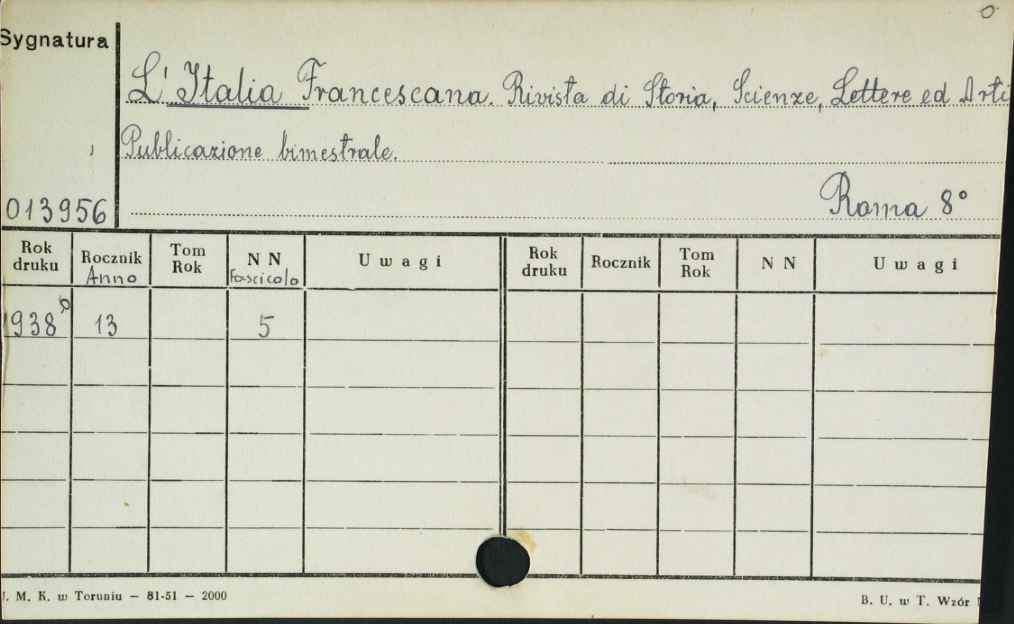 Sygnatura
L'Italia Francescana. Rivista di Storia, Scienze, Lettere ed Arti
Publicazione bimestrale.
013956
Roma 8°
Rok druku Rocznik Anno Tom Rok N N Fascicolo Uwagi Rok druku Rocznik Tom Rok N N Uwagi
1938 13 5
U. M. K. w Toruniu — 81-51 — 2000
B. U. w T. Wzór